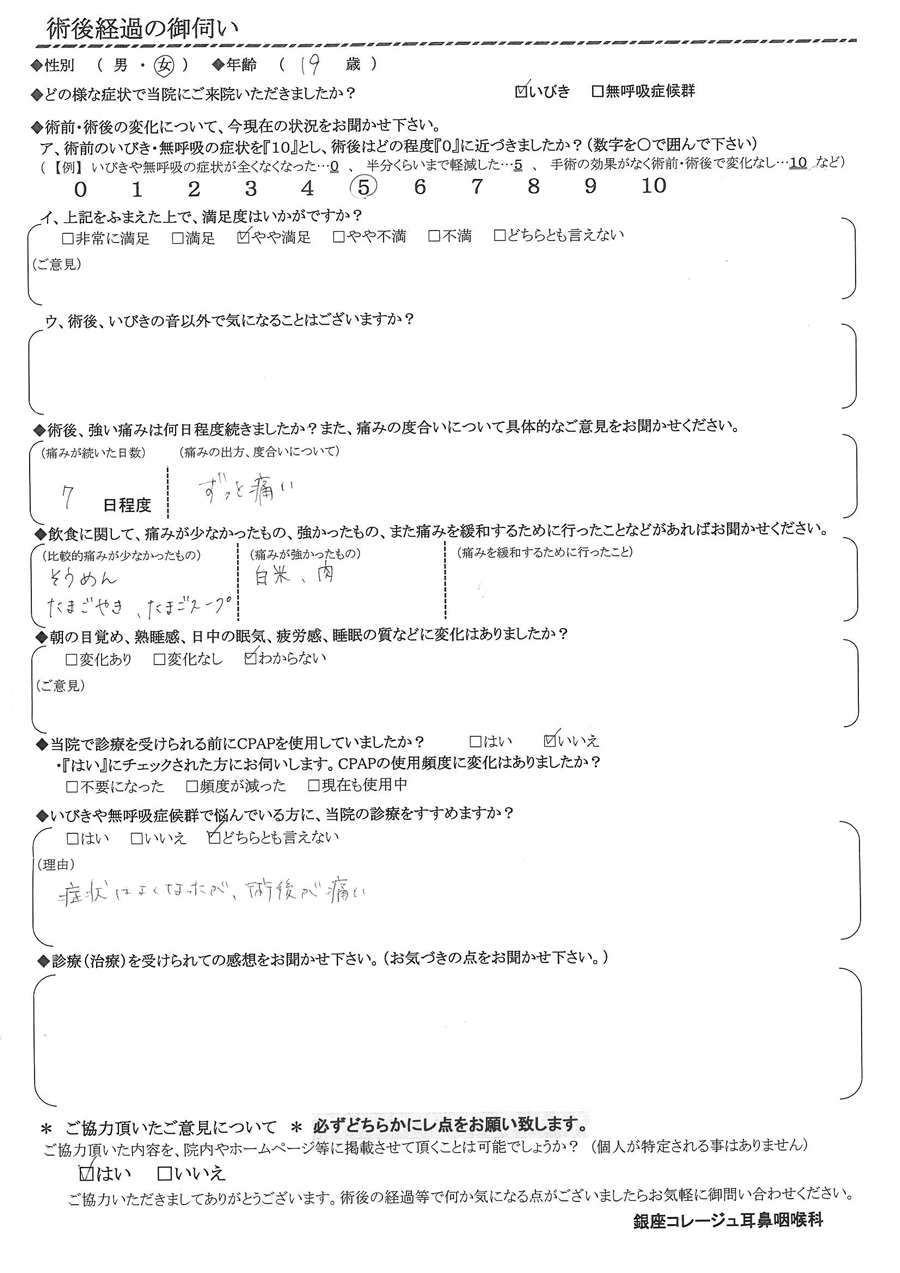 術後経過の御伺い
◆性別 ( 男 ・ 女 ) ◆年齢 ( 19 歳 )
◆どの様な症状で当院にご来院いただきましたか? ☑いびき □無呼吸症候群
◆術前・術後の変化について、今現在の状況をお聞かせ下さい。
ア、術前のいびき・無呼吸の症状を『10』とし、術後はどの程度『0』に近づきましたか?(数字を〇で囲んで下さい)
(【例】いびきや無呼吸の症状が全くなくなった…0 、 半分くらいまで軽減した…5 、 手術の効果がなく術前・術後で変化なし…10 など)
0 1 2 3 4 5 6 7 8 9 10
イ、上記をふまえた上で、満足度はいかがですか?
□非常に満足 □満足 ☑やや満足 □やや不満 □不満 □どちらとも言えない
(ご意見)
ウ、術後、いびきの音以外で気になることはございますか?
◆術後、強い痛みは何日程度続きましたか?また、痛みの度合いについて具体的なご意見をお聞かせください。
(痛みが続いた日数) (痛みの出方、度合いについて)
7 日程度 ずっと痛い
◆飲食に関して、痛みが少なかったもの、強かったもの、また痛みを緩和するために行ったことなどがあればお聞かせください。
(比較的痛みが少なかったもの) (痛みが強かったもの) (痛みを緩和するために行ったこと)
そうめん 白米、肉
たまごやき、たまごスープ
◆朝の目覚め、熟睡感、日中の眠気、疲労感、睡眠の質などに変化はありましたか?
□変化あり □変化なし ☑わからない
(ご意見)
◆当院で診療を受けられる前にCPAPを使用していましたか? □はい ☑いいえ
・『はい』にチェックされた方にお伺いします。CPAPの使用頻度に変化はありましたか?
□不要になった □頻度が減った □現在も使用中
◆いびきや無呼吸症候群で悩んでいる方に、当院の診療をすすめますか?
□はい □いいえ ☑どちらとも言えない
(理由)
症状はよくなったが、術後が痛い
◆診療(治療)を受けられての感想をお聞かせ下さい。(お気づきの点をお聞かせ下さい。)
＊ ご協力頂いたご意見について ＊ 必ずどちらかにレ点をお願い致します。
ご協力頂いた内容を、院内やホームページ等に掲載させて頂くことは可能でしょうか? (個人が特定される事はありません)
☑はい □いいえ
ご協力いただきましてありがとうございます。術後の経過等で何か気になる点がございましたらお気軽に御問い合わせください。
銀座コレージュ耳鼻咽喉科